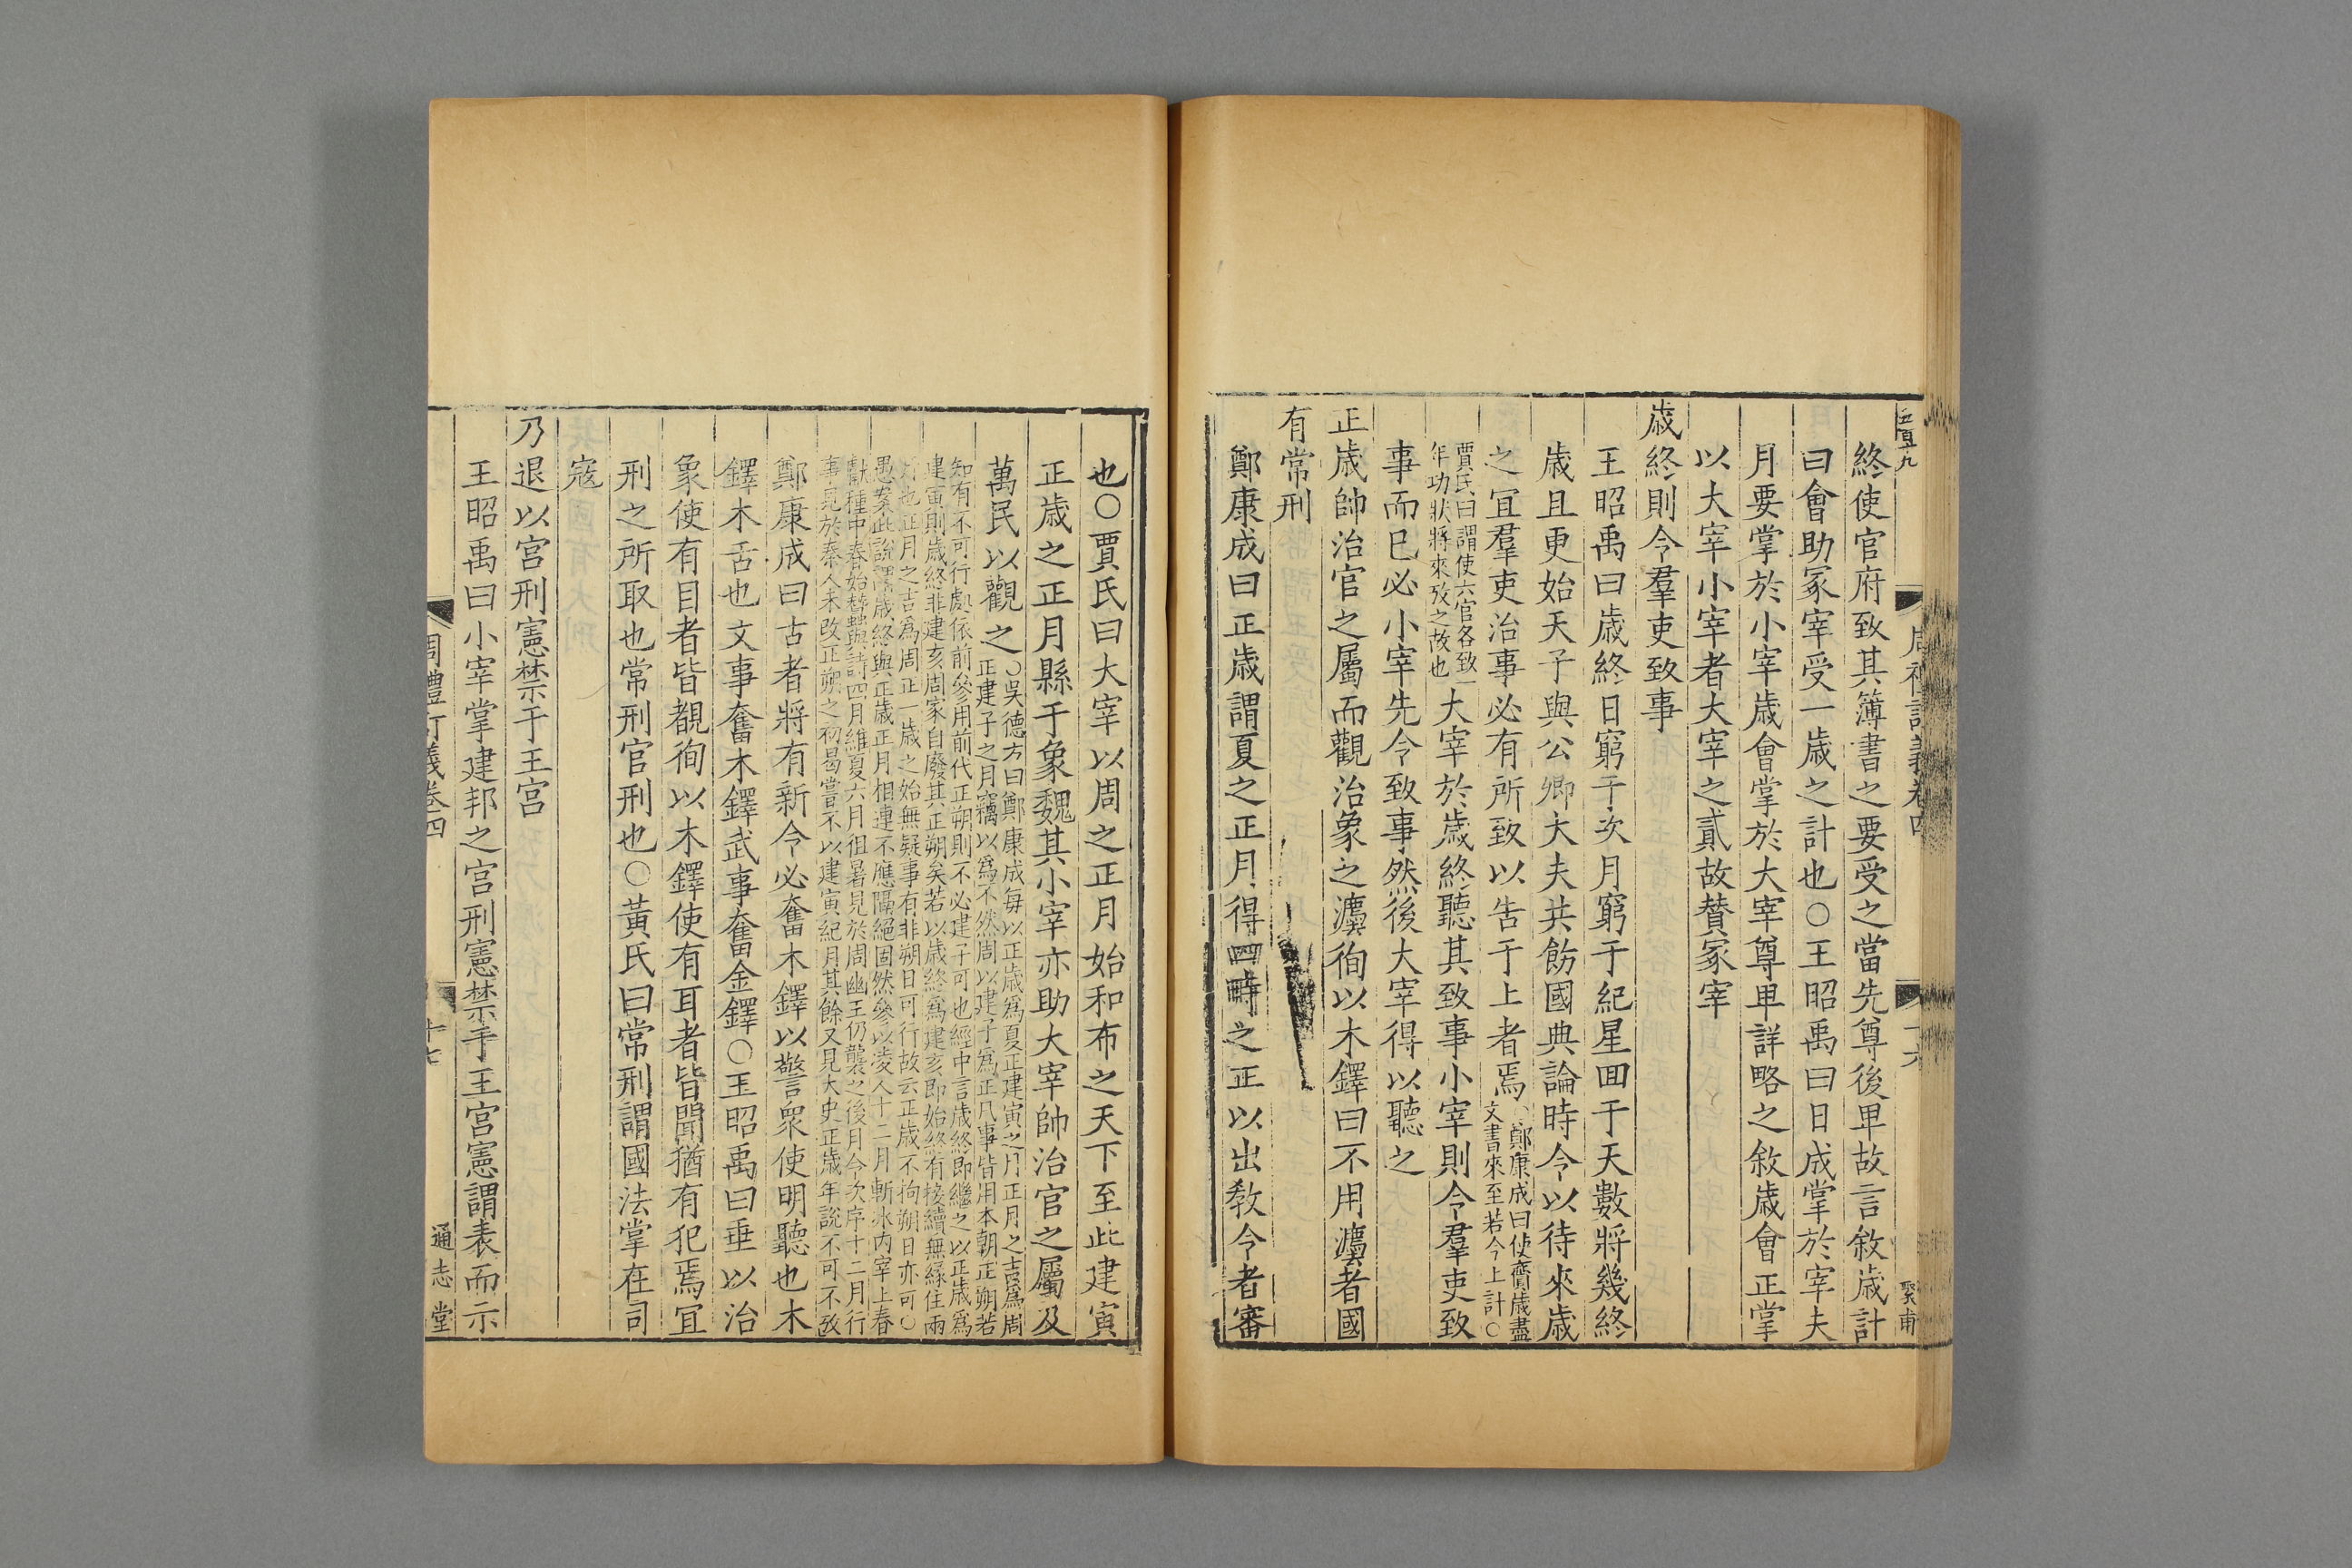 終使官府致其簿書之要受之當先尊後卑故言敘歲計
曰會助冢宰受一歲之計也○王昭禹曰日成掌於宰夫
月要掌於小宰歲會掌於大宰尊卑詳略之敘歲會正掌
以大宰小宰者大宰之貳故贊冢宰
歲終則令羣吏致事
王昭禹曰歲終日窮于次月窮于紀星回于天數將幾終
歲且更始天子與公卿大夫共飭國典論時令以待來歲
之宜羣吏治事必有所致以告于上者焉○鄭康成曰使齎歲盡
文書來至若今上計○
賈氏曰謂使六官各致一
年功狀將來攷之故也大宰於歲終聽其致事小宰則令羣吏致
事而巳必小宰先令致事然後大宰得以聽之
正歲帥治官之屬而觀治象之灋徇以木鐸曰不用灋者國
有常刑
鄭康成曰正歲謂夏之正月得四時之正以出教令者審
也○賈氏曰大宰以周之正月始和布之天下至此建寅
正歲之正月縣于象魏其小宰亦助大宰帥治官之屬及
萬民以觀之○吳德方曰鄭康成每以正歲為夏正建寅之月正月之吉為周
正建子之月竊以為不然周以建子為正凡事皆用本朝正朔若
知有不可行處依前參用前代正朔則不必建子可也經中言歲終即繼之以正歲為
建寅則歲終非建亥周家自廢其正朔矣若以歲終為建亥即始終有接續無緣住兩
月也正月之吉為周正一歲之始無疑事有非朔日可行故云正歲不拘朔日亦可○
愚案此說謂歲終與正歲正月相連不應隔絕固然參以凌人十二月斬冰內宰上春
獻種中春始蠶與詩四月維夏六月徂暑見於周幽王仍襲之後月令次序十二月行
事見於秦人未改正朔之初曷嘗不以建寅紀月其餘又見大史正歲年說不可不攷
鄭康成曰古者將有新令必奮木鐸以警衆使明聽也木
鐸木舌也文事奮木鐸武事奮金鐸○王昭禹曰垂以治
象使有目者皆覩徇以木鐸使有耳者皆聞猶有犯焉宜
刑之所取也常刑官刑也○黃氏曰常刑謂國法掌在司
寇
乃退以宮刑憲禁于王宮
王昭禹曰小宰掌建邦之宮刑憲禁于王宮憲謂表而示
周禮訂義卷四
十七
通志堂